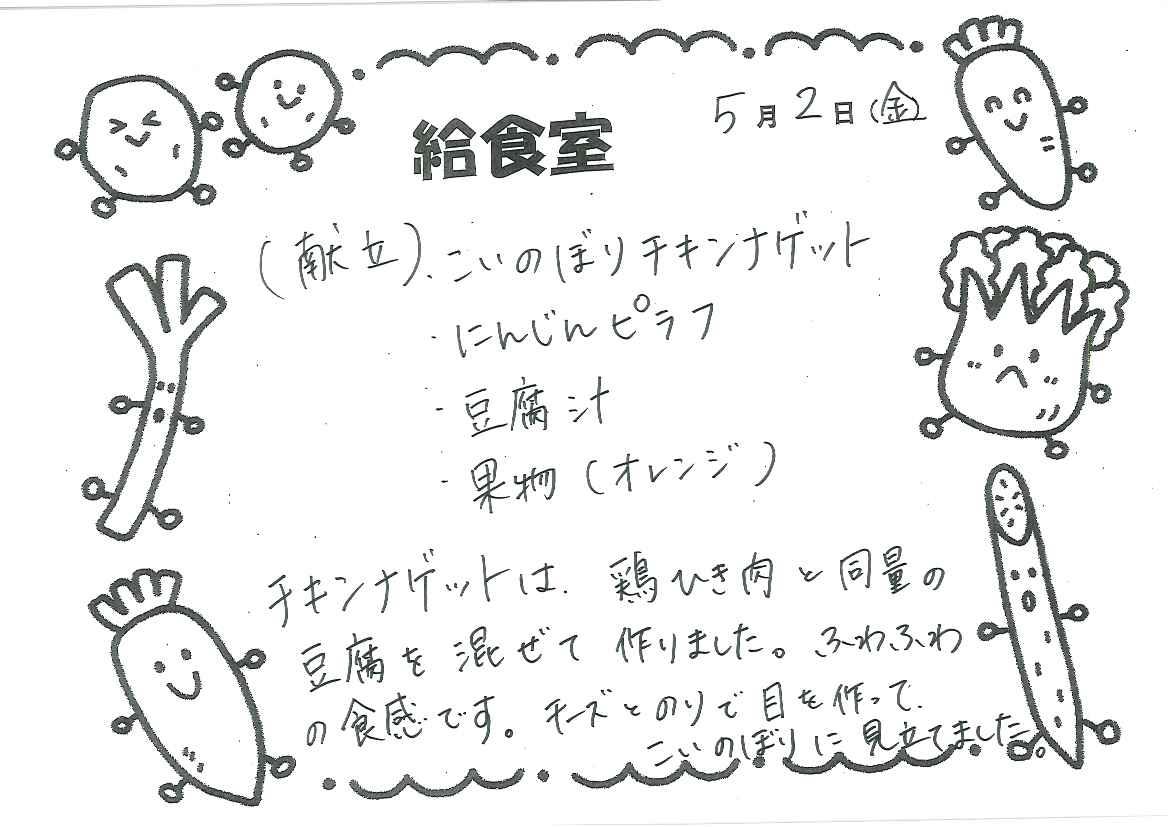 5月2日(金)
給食室
(献立)、こいのぼりチキンナゲット
・にんじんピラフ
・豆腐汁
・果物(オレンジ)
チキンナゲットは、鶏ひき肉と同量の
豆腐を混ぜて作りました。ふわふわ
の食感です。チーズとのりで目を作って、
こいのぼりに見立てました。